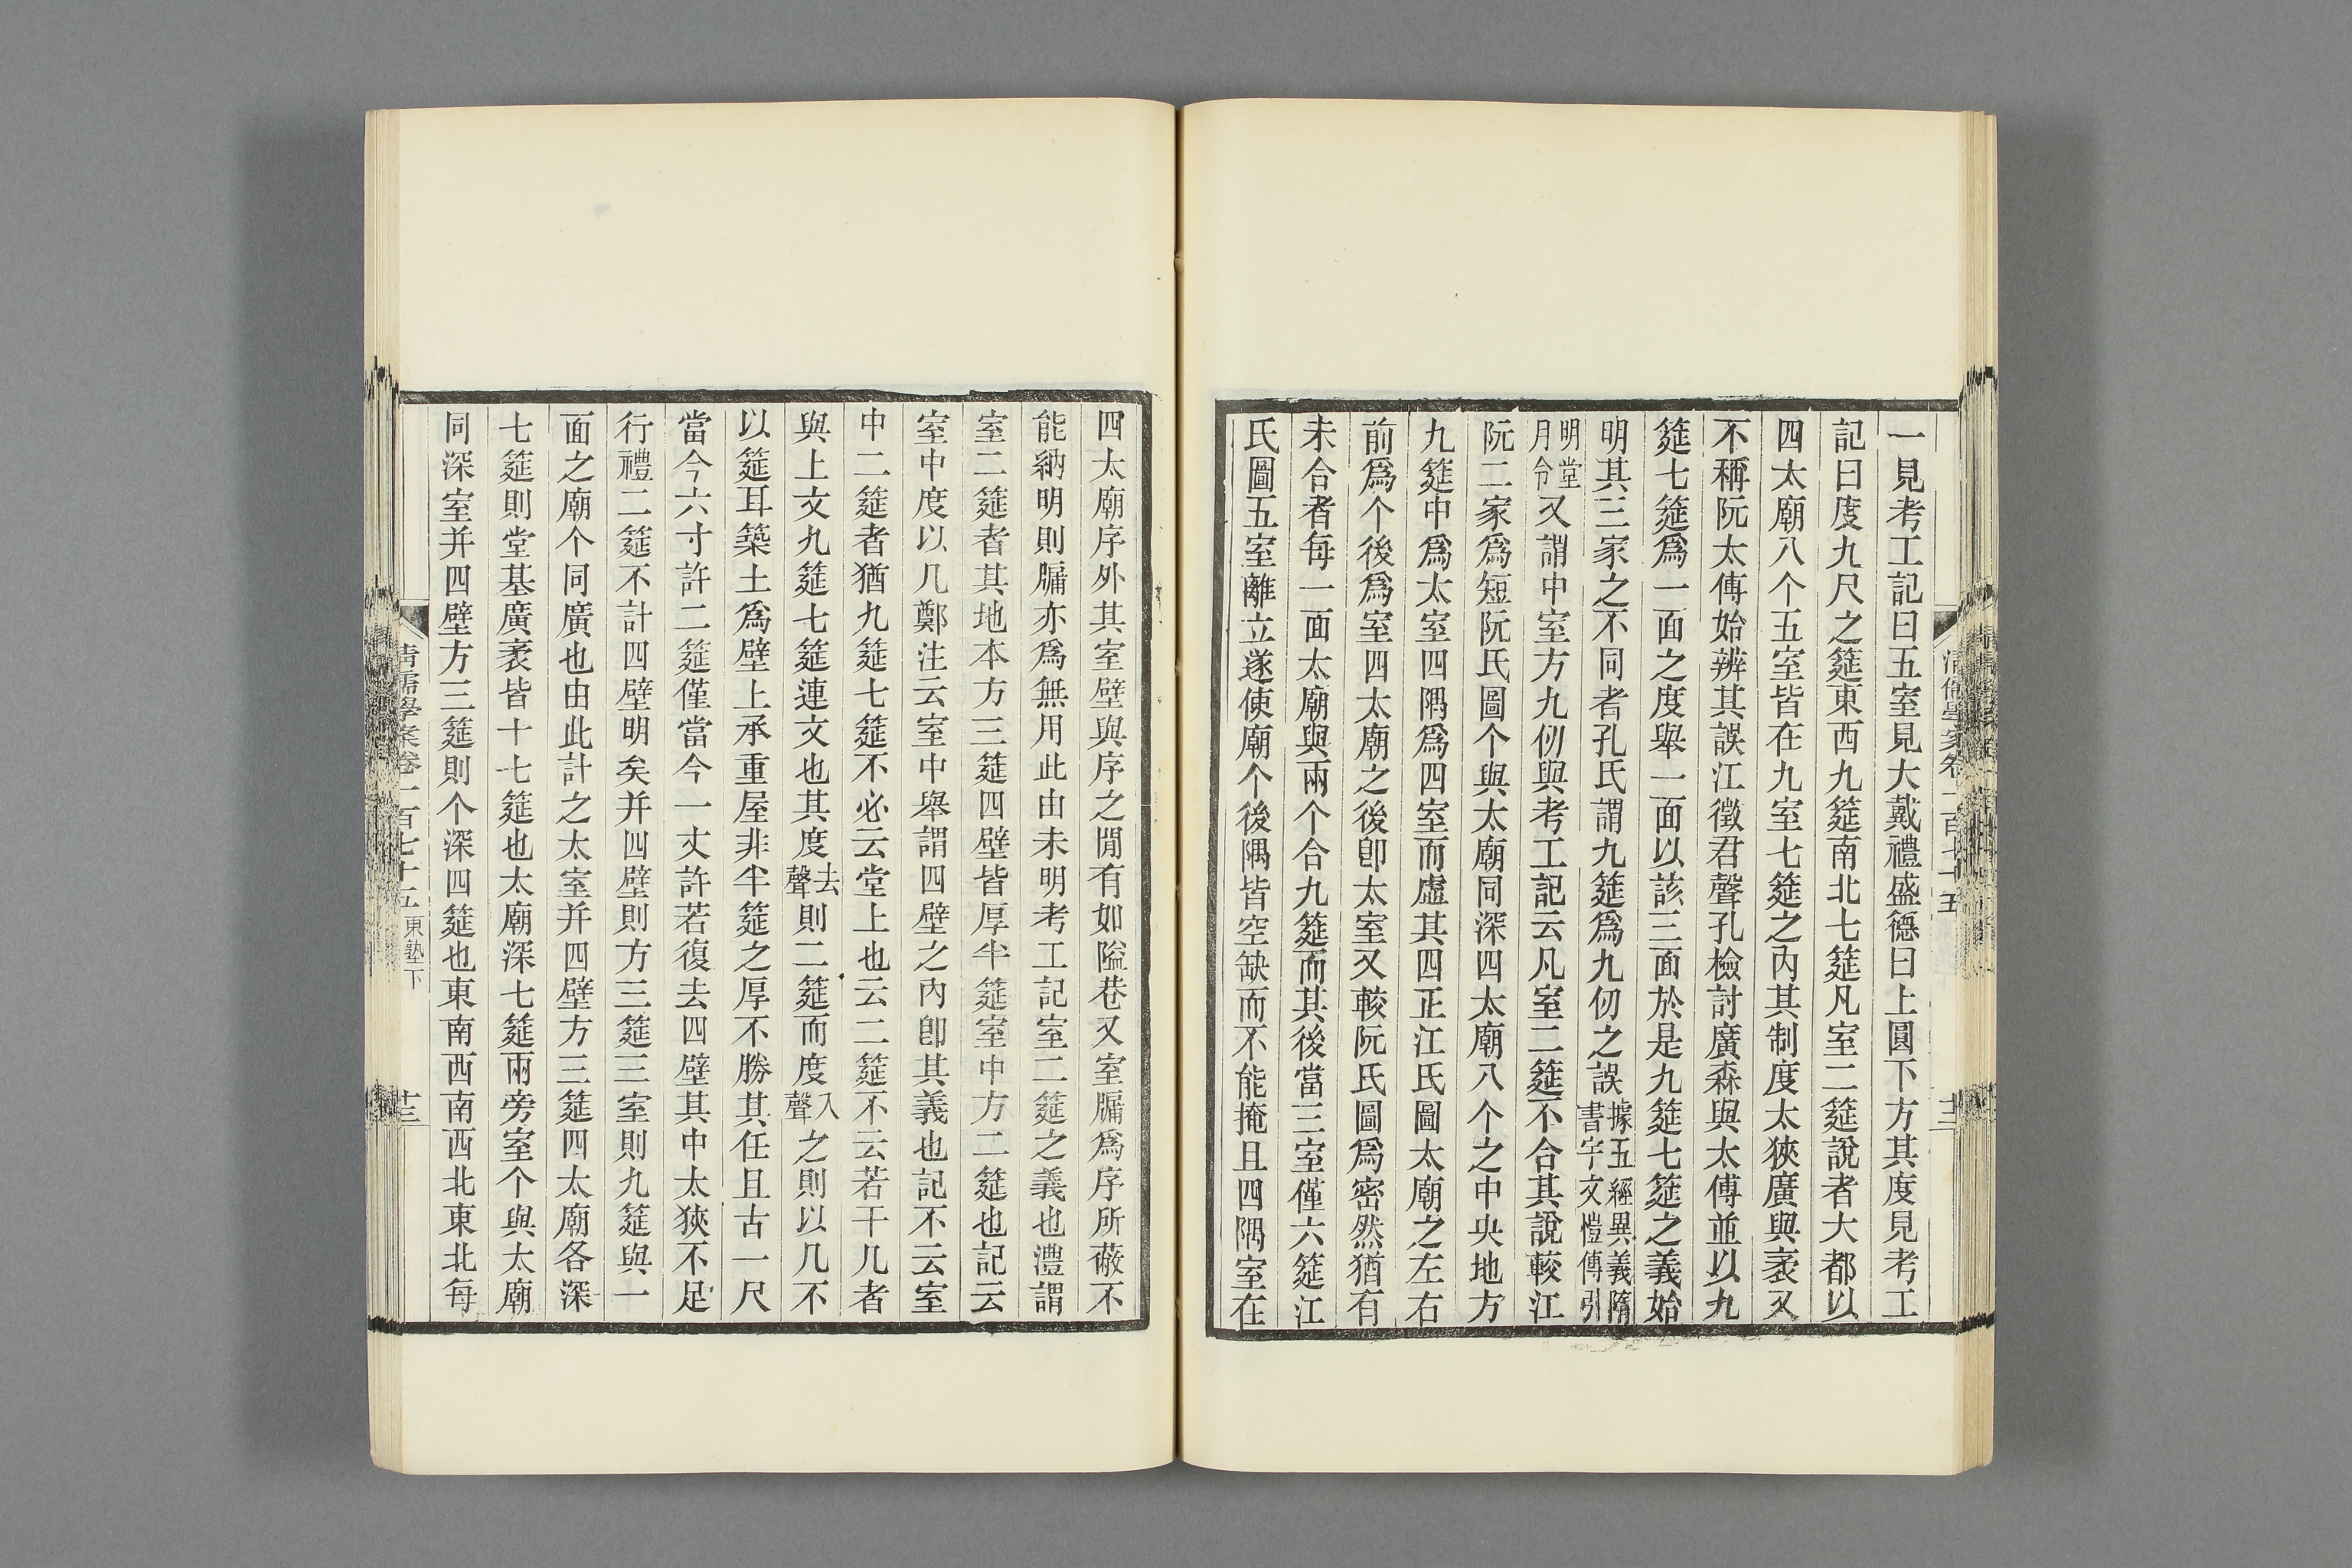 一見考工記曰五室見大戴禮盛德曰上圓下方其度見考工
記曰度九尺之筵東西九筵南北七筵凡室二筵說者大都以
四太廟八个五室皆在九室七筵之內其制度太狹廣與袤又
不稱阮太傅始辨其誤江徵君聲孔檢討廣森與太傅並以九
筵七筵爲一面之度舉一面以該三面於是九筵七筵之義始
明其三家之不同者孔氏謂九筵爲九仞之誤據五經異義隋書宇文愷傳引
明堂月令又謂中室方九仞與考工記云凡室二筵不合其說較江
阮二家爲短阮氏圖个與太廟同深四太廟八个之中央地方
九筵中爲太室四隅爲四室而虛其四正江氏圖太廟之左右
前爲个後爲室四太廟之後卽太室又較阮氏圖爲密然猶有
未合者每一面太廟與兩个合九筵而其後當三室僅六筵江
氏圖五室離立遂使廟个後隅皆空缺而不能掩且四隅室在
四太廟序外其室壁與序之閒有如隘巷又室牖爲序所蔽不
能納明則牖亦爲無用此由未明考工記室二筵之義也澧謂
室二筵者其地本方三筵四壁皆厚半筵室中方二筵也記云
室中度以几鄭注云室中舉謂四壁之內卽其義也記不云室
中二筵者猶九筵七筵不必云堂上也云二筵不云若干几者
與上文九筵七筵連文也其度去聲則二筵而度入聲之則以几不
以筵耳築土爲壁上承重屋非半筵之厚不勝其任且古一尺
當今六寸許二筵僅當今一丈許若復去四壁其中太狹不足
行禮二筵不計四壁明矣并四壁則方三筵三室則九筵與一
面之廟个同廣也由此計之太室并四壁方三筵四太廟各深
七筵則堂基廣袤皆十七筵也太廟深七筵兩旁室个與太廟
同深室并四壁方三筵則个深四筵也東南西南西北東北每
清儒學案卷一百七十五 東塾下
十三